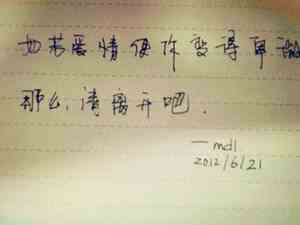 如若爱情使你变得卑微
那么,请离开吧.
— mdl
2012/6/21